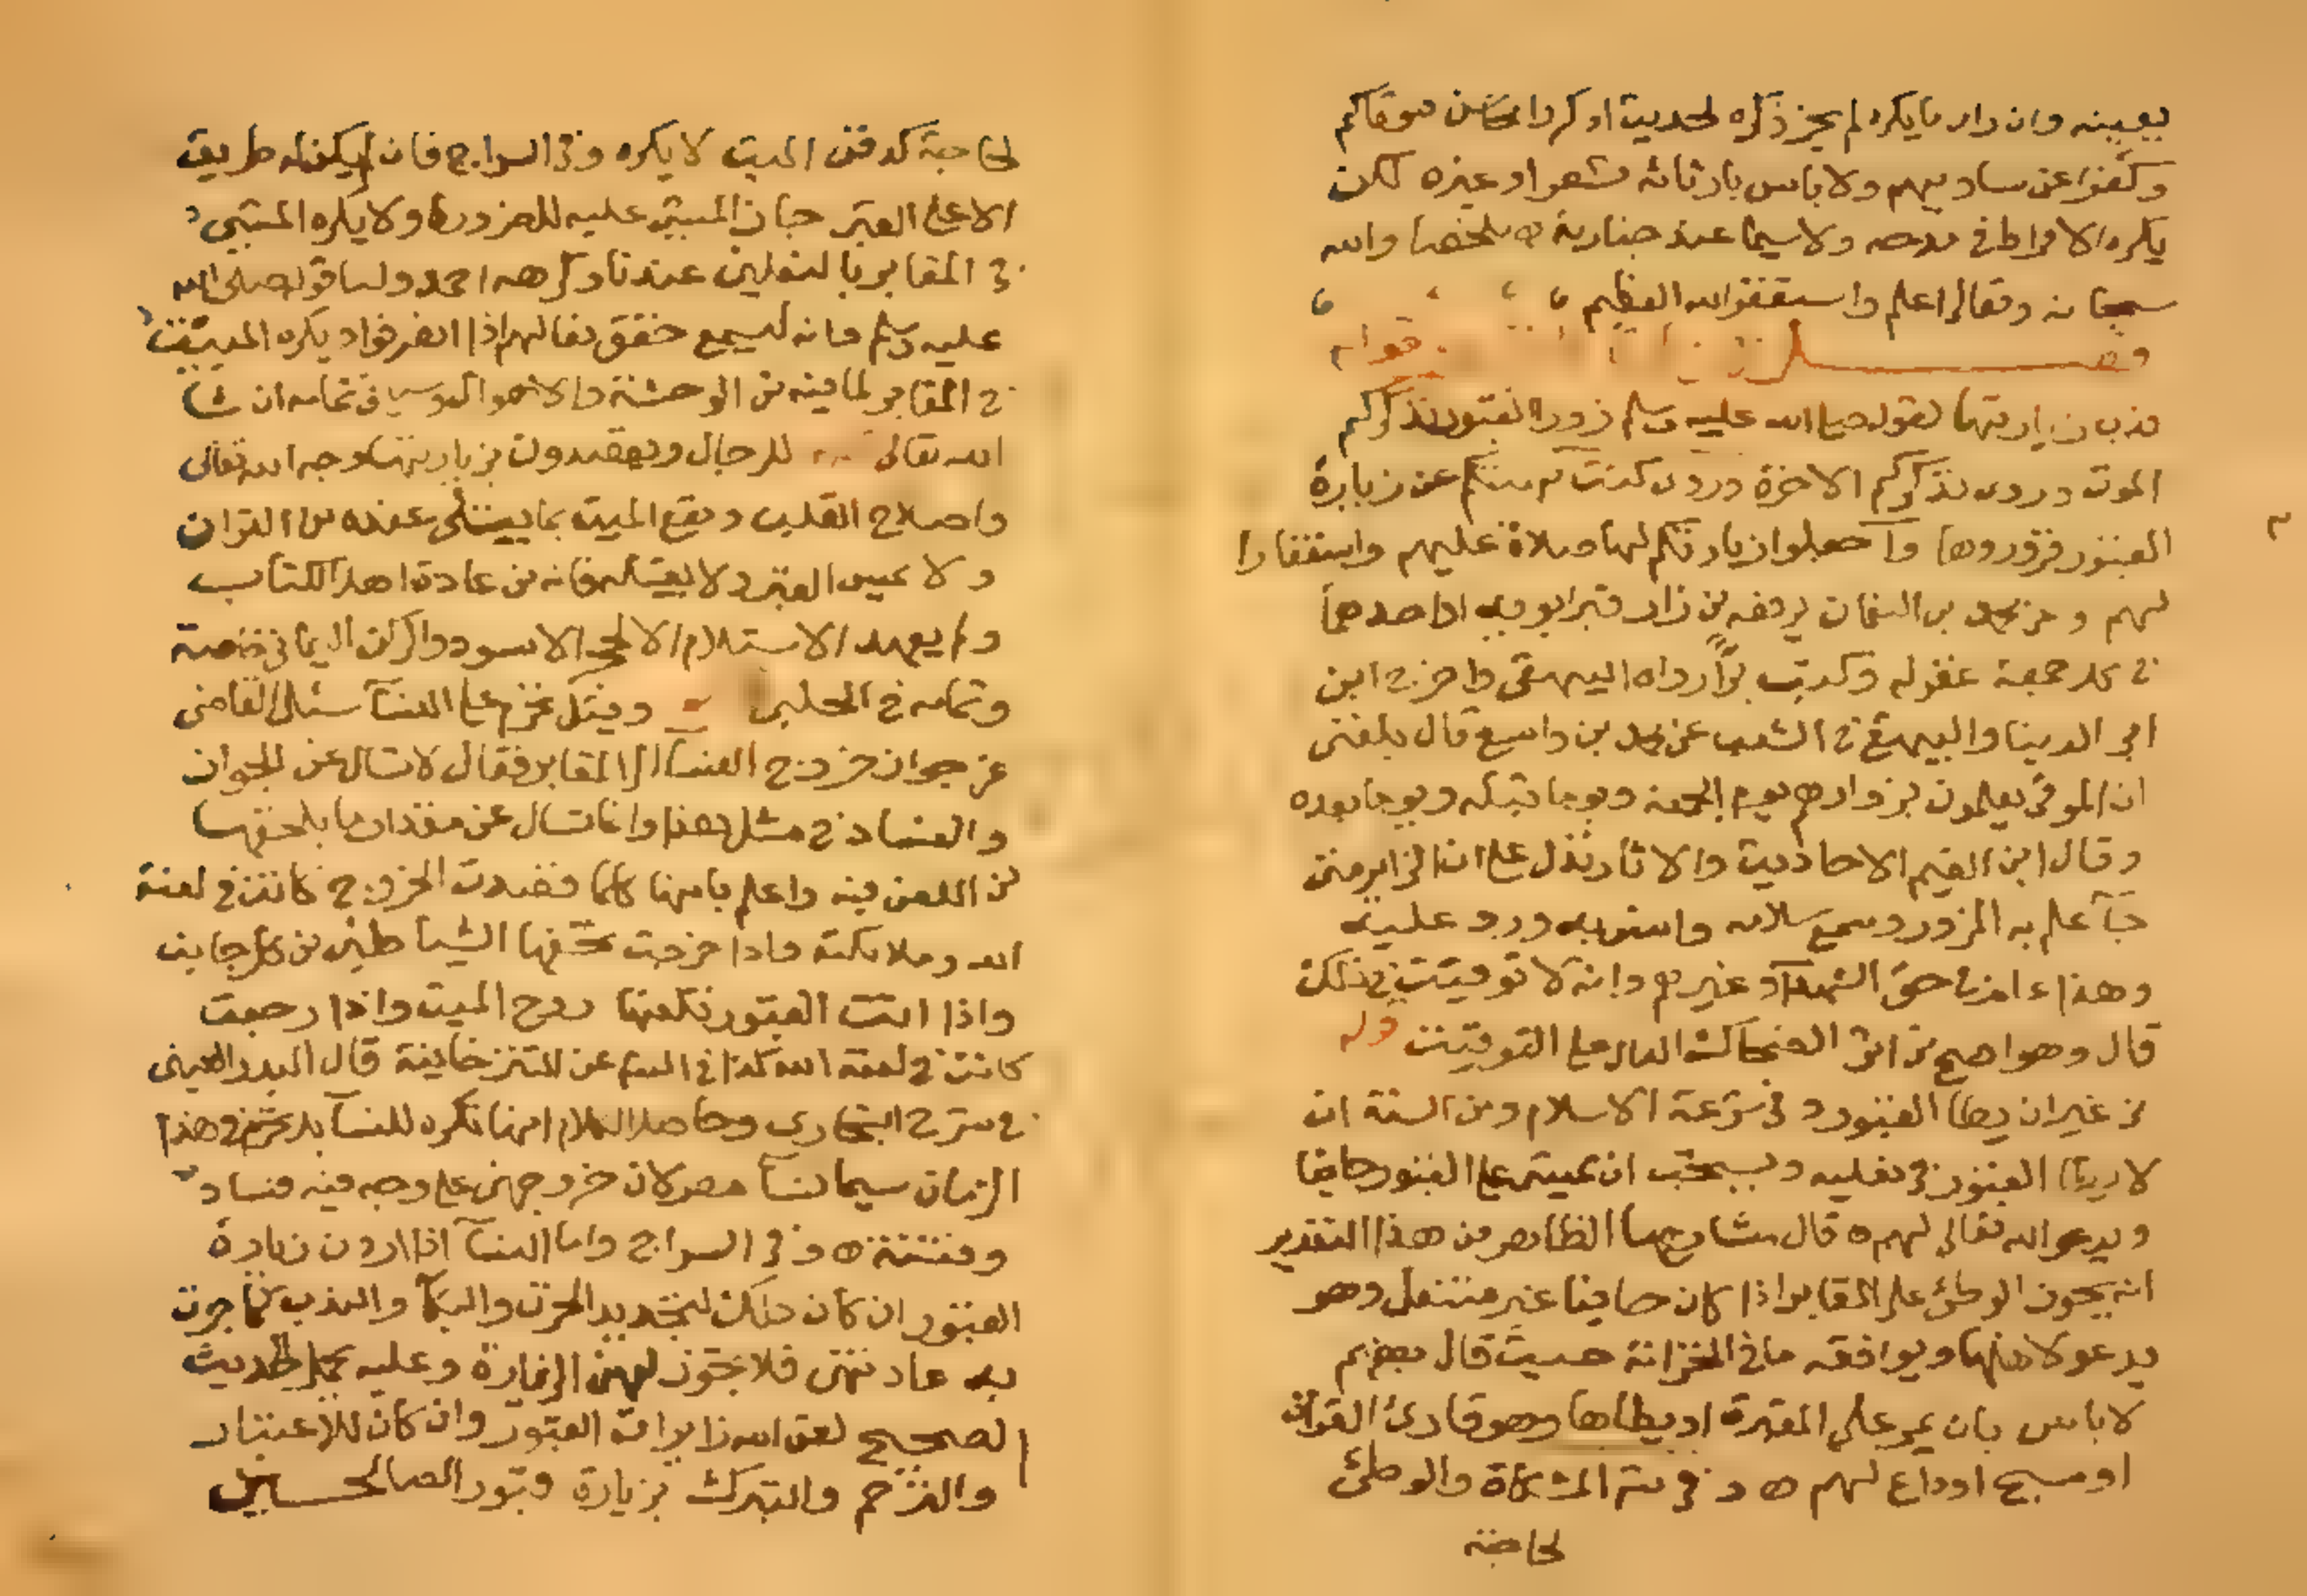 بعينه وان راى ما يكره لم يجز ذكره لحديث اذكروا محاسن موتاكم
وكفوا عن مساويهم ولا باس بارثائه بشعر او غيره لكن
يكره الافراط في مدحه ولا سيما عند جنازته اه ملخصا والله
سبحانه وتعالى اعلم واستغفر الله العظيم
فصل قوله
ندب زيارتها لقوله صلى الله عليه وسلم زوروا القبور تذكركم
الموت وروى تذكركم الاخرة وروى كنت نهيتكم عن زيارة
القبور فزوروها واجعلوا زيارتكم لها صلاة عليهم واستغفارا
لهم وعن محمد بن النعمان يرفعه من زار قبر ابويه او احدهما
في كل جمعة غفر له وكتب برا رواه البيهقي واخرج ابن
ابي الدنيا والبيهقي في الشعب عن محمد بن واسع قال بلغني
ان الموتى يعلمون بزوارهم يوم الجمعة ويوما قبله ويوما بعده
وقال ابن القيم الاحاديث والاثار تدل على ان الزاير متى
جآ علم به المزور وسمع سلامه وانس به ورد عليه
وهذا عام في حق الشهدآ وغيرهم وانه لا توقيت في ذلك
قال وهو اصح من اثر الضحاك الدال على التوقيت قوله
من غير ان يطا القبور وفي شرعة الاسلام ومن السنة ان
لا يطا القبور في نعليه ويستحب ان يمشي على القبور حافيا
ويدعو الله تعالى لهم ه قال شارحها الظاهر من هذا التقدير
انه يجوز الوطئ على المقابر اذا كان حافيا غير متنعل وهو
يدعو لاهلها ويوافقه ما في الخزانة حيث قال بعضهم
لا باس بان يمر على المقبرة او يطاها وهو قارئ القران
او مسبح او داع لهم اه وفي شرح المشكاة والوطئ
لحاجة
لحاجة كدفن الميت لا يكره وفي السراج فان لم يكن له طريق
الا على القبر جاز المشي عليه للضرورة ولا يكره المشي
في المقابر بالنعلين عندنا وكرهه احمد ولنا قوله صلى الله
عليه وسلم فانه ليسمع خفق نعالهم اذا انصرفوا ويكره المبيت
في المقابر لما فيه من الوحشة والاهوال وسياتي تمامه ان شا
الله تعالى للرجال ويقصدون بزيارتها وجه الله تعالى
واصلاح القلب ونفع الميت بما يتلى عنده من القران
ولا يمس القبر ولا يقبله فانه من عادة اهل الكتاب
ولم يعهد الاستلام الا للحجر الاسود والركن اليماني خاصة
وتمامه في الحلبي وقيل تحرم على النسآ سئل القاضي
عن جواز خروج النسآ الى المقابر فقال لا تسال عن الجواز
والفساد في مثل هذا وانما تسال عن مقدار ما يلحقها
من اللعن فيه واعلم بانها كلما قصدت الخروج كانت في لعنة
الله وملائكته واذا خرجت تحفها الشياطين من كل جانب
واذا اتت القبور تلعنها روح الميت واذا رجعت
كانت في لعنة الله كذا في الشرح عن التترخانية قال البدر العيني
في شرح البخاري وحاصل الكلام انها تكره للنسآ بل تحرم في هذا
الزمان سيما نسآ مصر لان خروجهن على وجه فيه فساد
وفتنة اه وفي السراج واما النسآ اذا اردن زيارة
القبور ان كان ذلك لتجديد الحزن والبكآ والندب كما جرت
به عادتهن فلا تجوز لهن الزيارة وعليه يحمل الحديث
الصحيح لعن الله زايرات القبور وان كان للاعتبار
والترحم والتبرك بزيارة قبور الصالحين